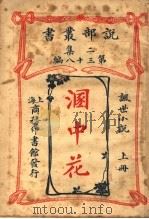 說部叢書
二集
第三十八編
誡世小說 上冊
溷中花
上海商務印書館發行